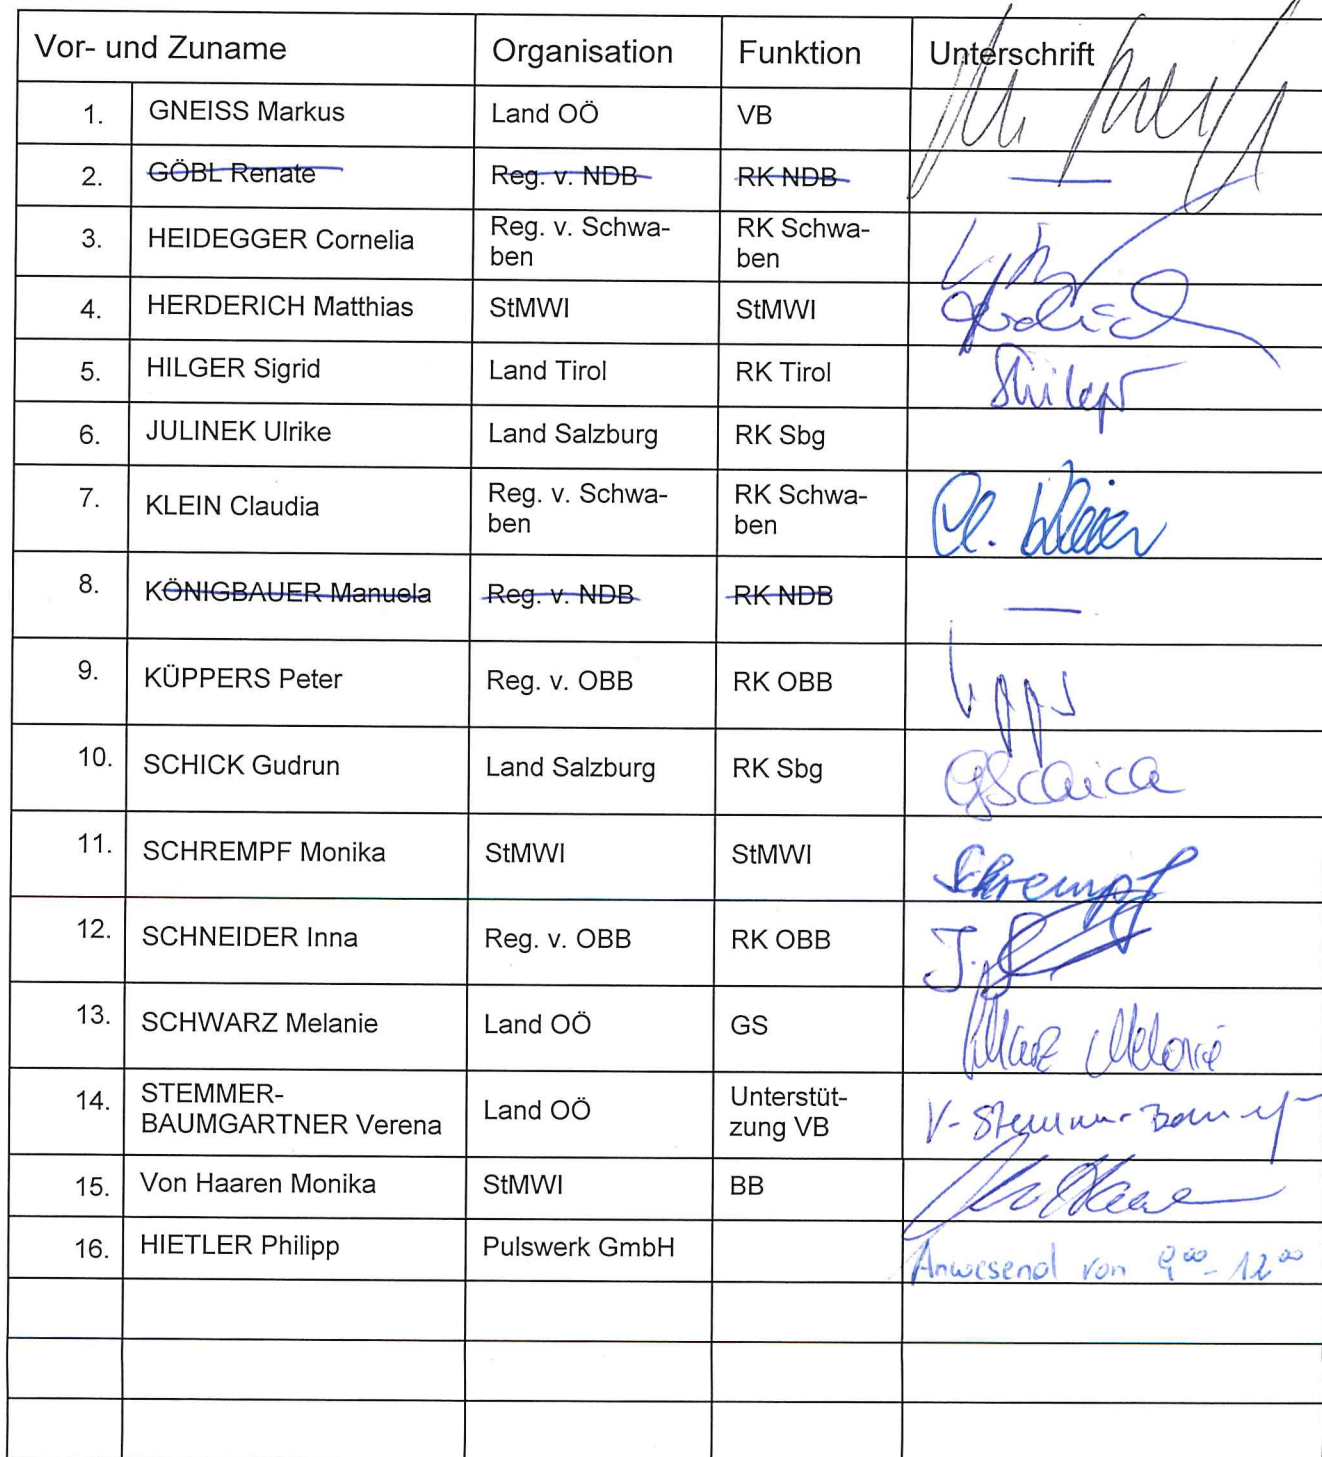 Vor- und Zuname Organisation Funktion Unterschrift
1. GNEISS Markus Land OÖ VB
2. GÖBL Renate Reg. v. NDB RK NDB —
3. HEIDEGGER Cornelia Reg. v. Schwa- RK Schwa-
ben ben
4. HERDERICH Matthias StMWI StMWI
5. HILGER Sigrid Land Tirol RK Tirol
6. JULINEK Ulrike Land Salzburg RK Sbg
7. KLEIN Claudia Reg. v. Schwa- RK Schwa- Cl. Klein
ben ben
8. KÖNIGBAUER Manuela Reg. v. NDB RK NDB —
9. KÜPPERS Peter Reg. v. OBB RK OBB
10. SCHICK Gudrun Land Salzburg RK Sbg
11. SCHREMPF Monika StMWI StMWI Schrempf
12. SCHNEIDER Inna Reg. v. OBB RK OBB
13. SCHWARZ Melanie Land OÖ GS
14. STEMMER- Unterstüt-
BAUMGARTNER Verena Land OÖ zung VB
15. Von Haaren Monika StMWI BB
16. HIETLER Philipp Pulswerk GmbH Anwesend von 9⁰⁰ - 12⁰⁰